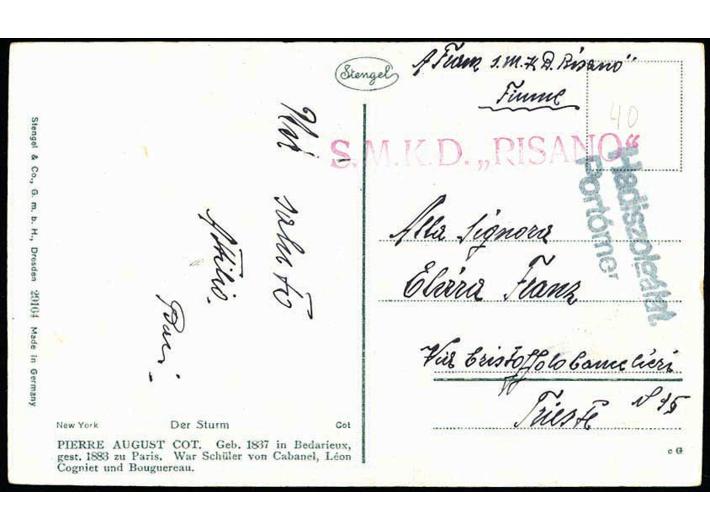 Stengel
A. Franz S.M.K.D. „Risano"
Fiume
40
S.M.K.D. „RISANO"
Hadiszolgálat
Portómer
saluto
Attilio
Baci
Alla Signora
Elvira Franz
Via Cristoffolo Cancellieri
N 15
Trieste
Stengel & Co., G. m. b. H., Dresden 29164 Made in Germany
New York Der Sturm Cot
PIERRE AUGUST COT. Geb. 1837 in Bedarieux,
gest. 1883 zu Paris. War Schüler von Cabanel, Léon
Cogniet und Bouguereau.
c G